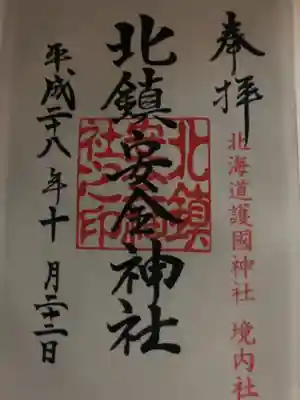 奉拝
北海道護國神社 境内社
北鎮安全神社
平成二十八年十月二十二日
北鎮
社之印